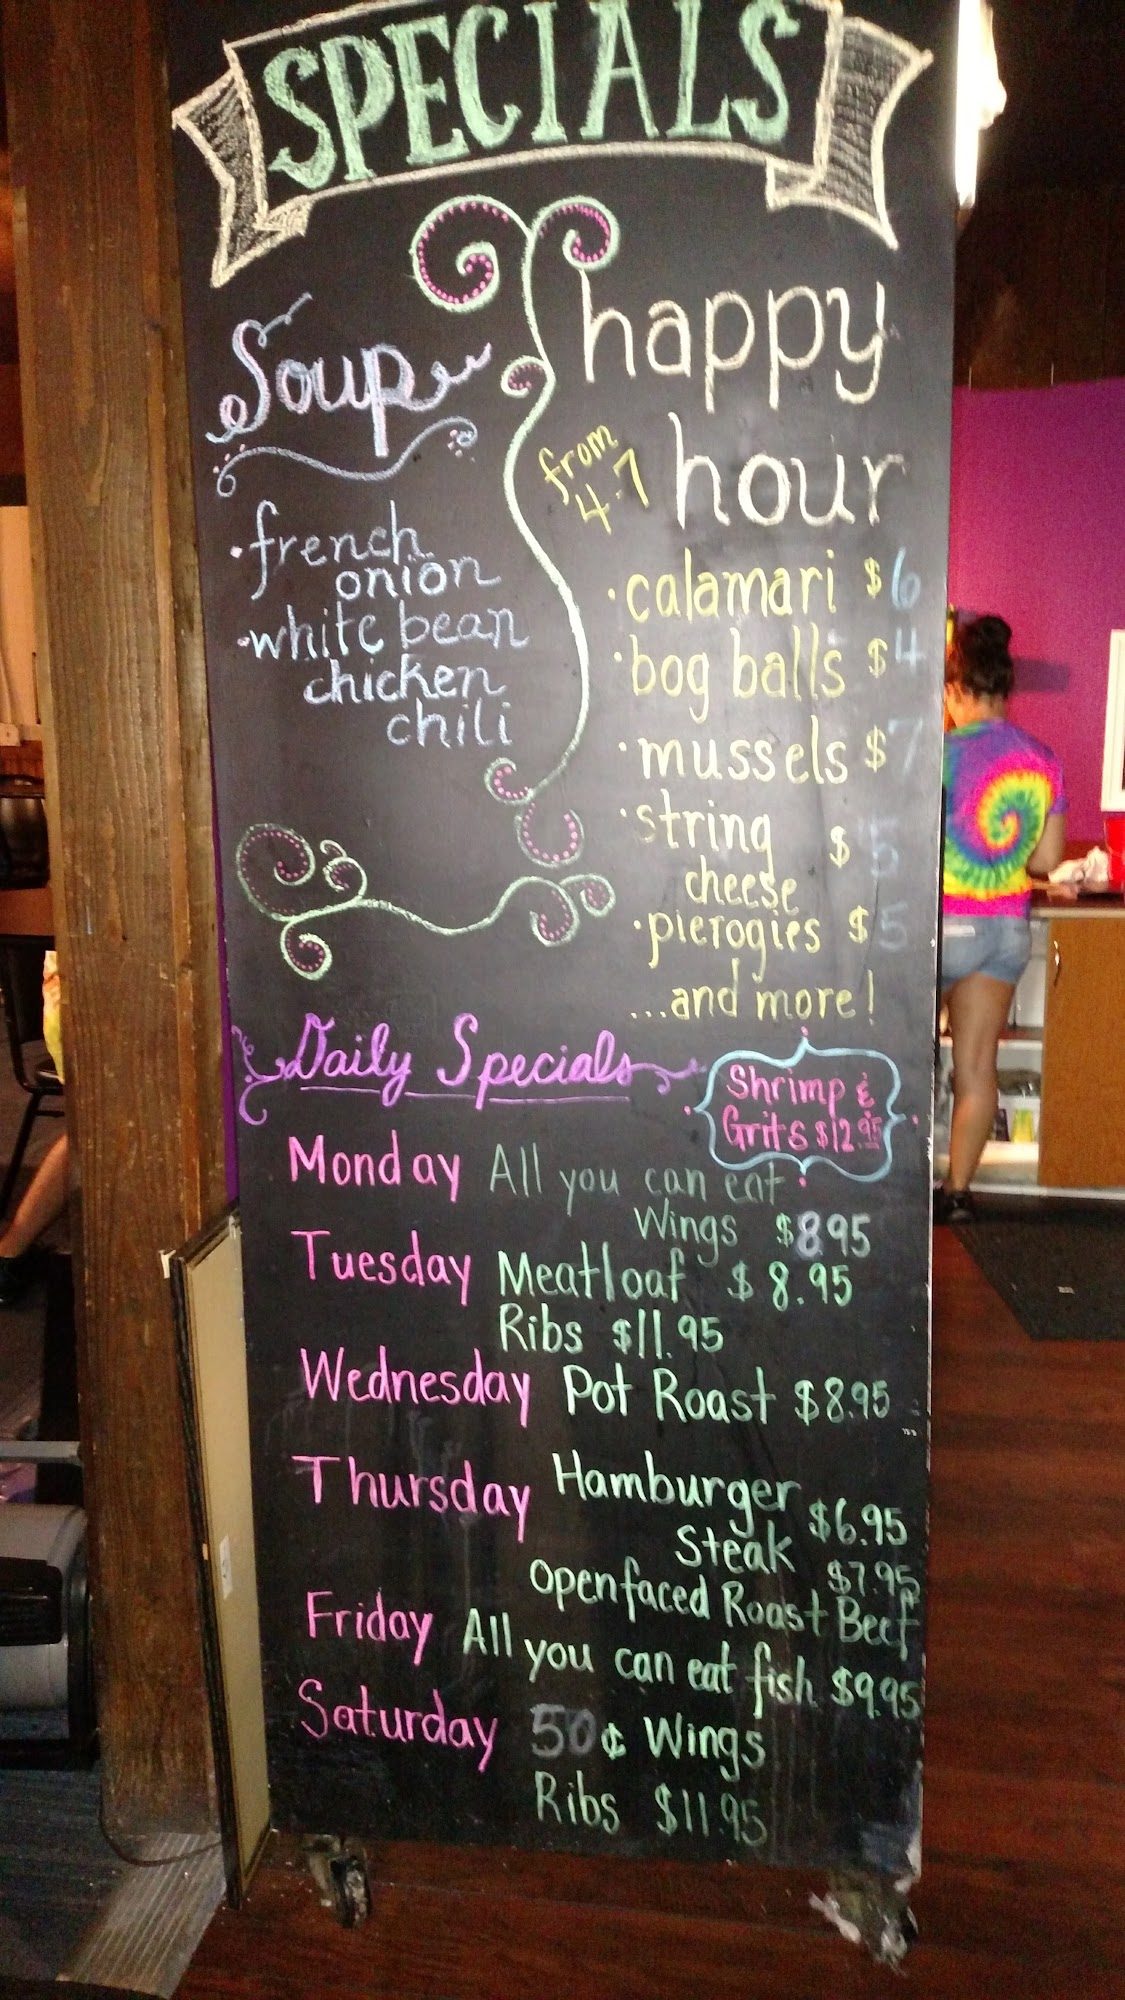 SPECIALS
Soup
· french
onion
· white bean
chicken
chili
happy
hour
from
4-7
· calamari $6
· bog balls $4
· mussels $7
· string
cheese $5
· pierogies $5
...and more!
Daily Specials
Shrimp &
Grits $12.95
Monday All you can eat
Wings $8.95
Tuesday Meatloaf $8.95
Ribs $11.95
Wednesday Pot Roast $8.95
Thursday Hamburger
Steak $6.95
$7.95
Openfaced Roast Beef
Friday All you can eat fish $9.95
Saturday 50¢ Wings
Ribs $11.95